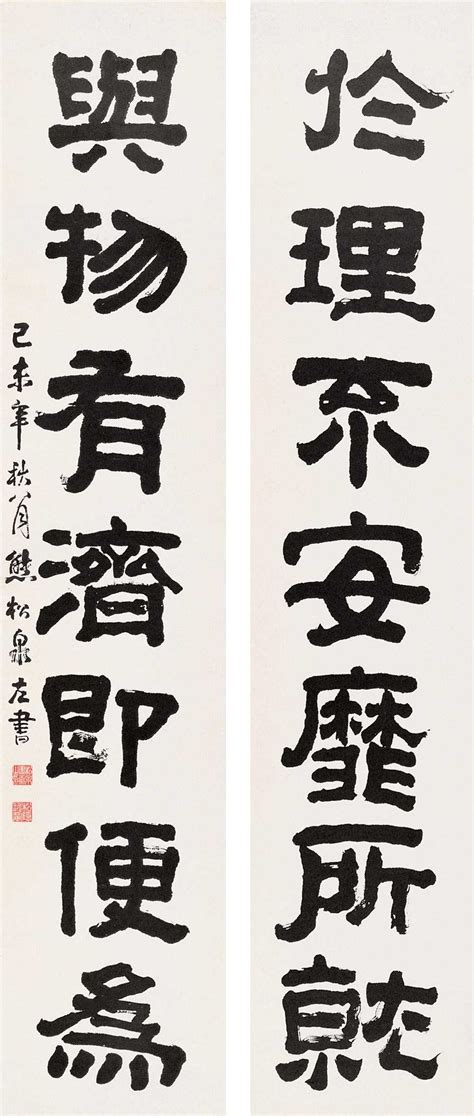 於理不安靡所就
與物有濟即便為
己未年秋八月熊松泉左書